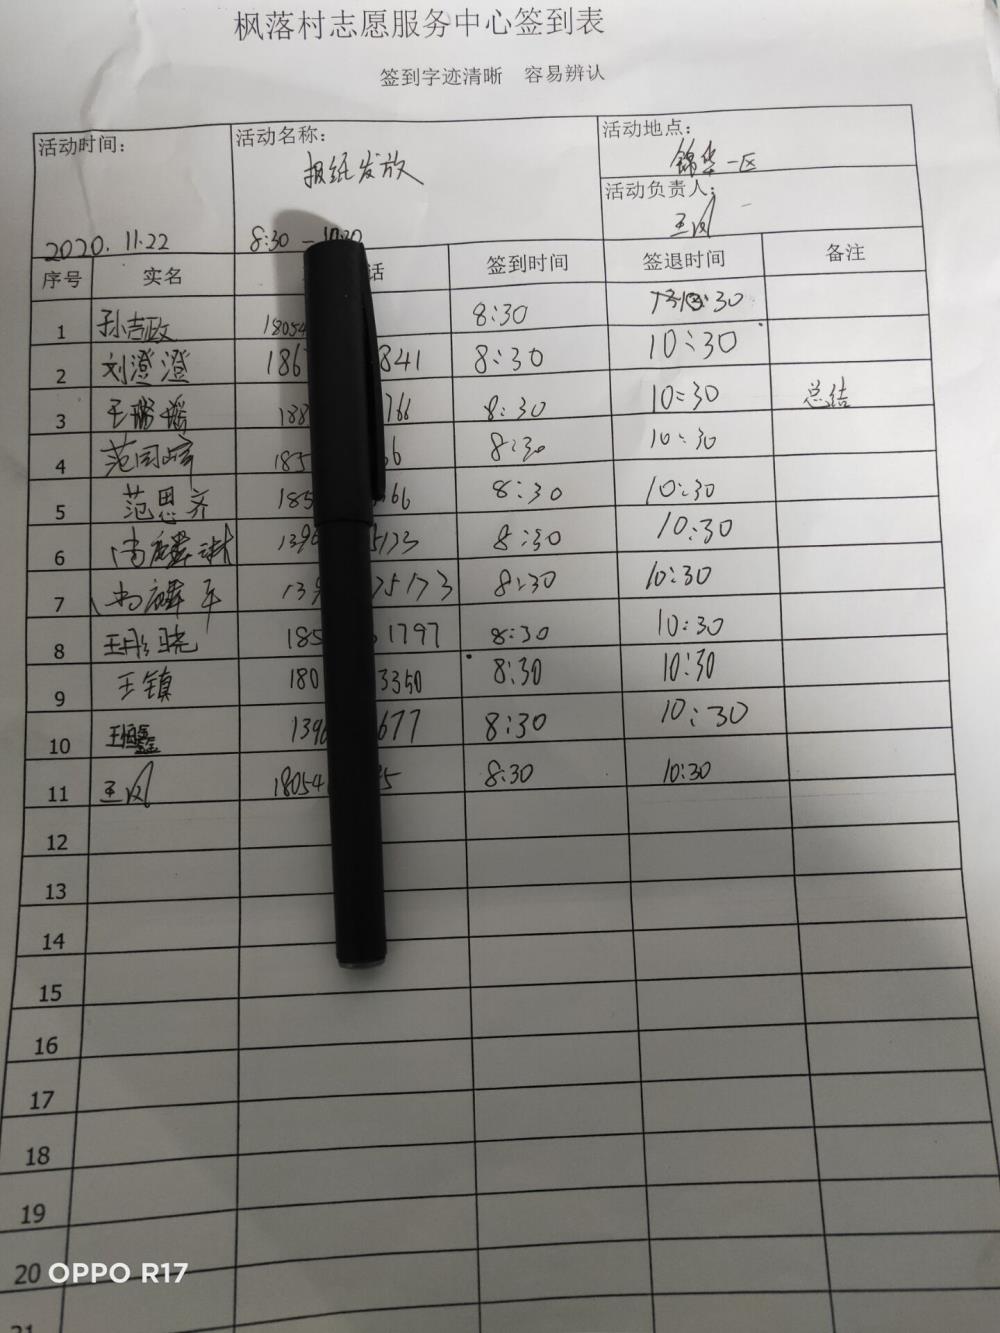 枫落村志愿服务中心签到表
签到字迹清晰 容易辨认
活动时间： 活动名称： 活动地点：
报纸发放 锦华一区
活动负责人：
王凤
2020.11.22 8:30 —
序号 实名 话 签到时间 签退时间 备注
1 孙吉政 18054 8:30 :30
2 刘澄澄 186 841 8:30 10:30
3 188 766 8:30 10:30 总结
4 范国峰 185 6 8:30 10:30
5 范思齐 185 66 8:30 10:30
6 尚麟琳 139 5173 8:30 10:30
7 尚麟平 139 75173 8:30 10:30
8 王彤晓 185 1797 8:30 10:30
9 王镇 180 3350 8:30 10:30
10 139 677 8:30 10:30
11 王凤 18054 5 8:30 10:30
12
13
14
15
16
17
18
19
20
21
OPPO R17